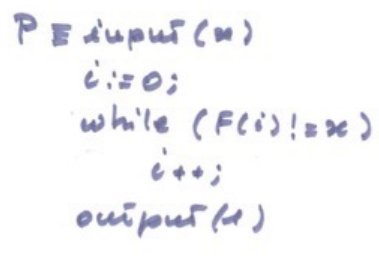 P ≡ input(x)
i:=0;
while (F(i)!=x)
i++;
output(1)